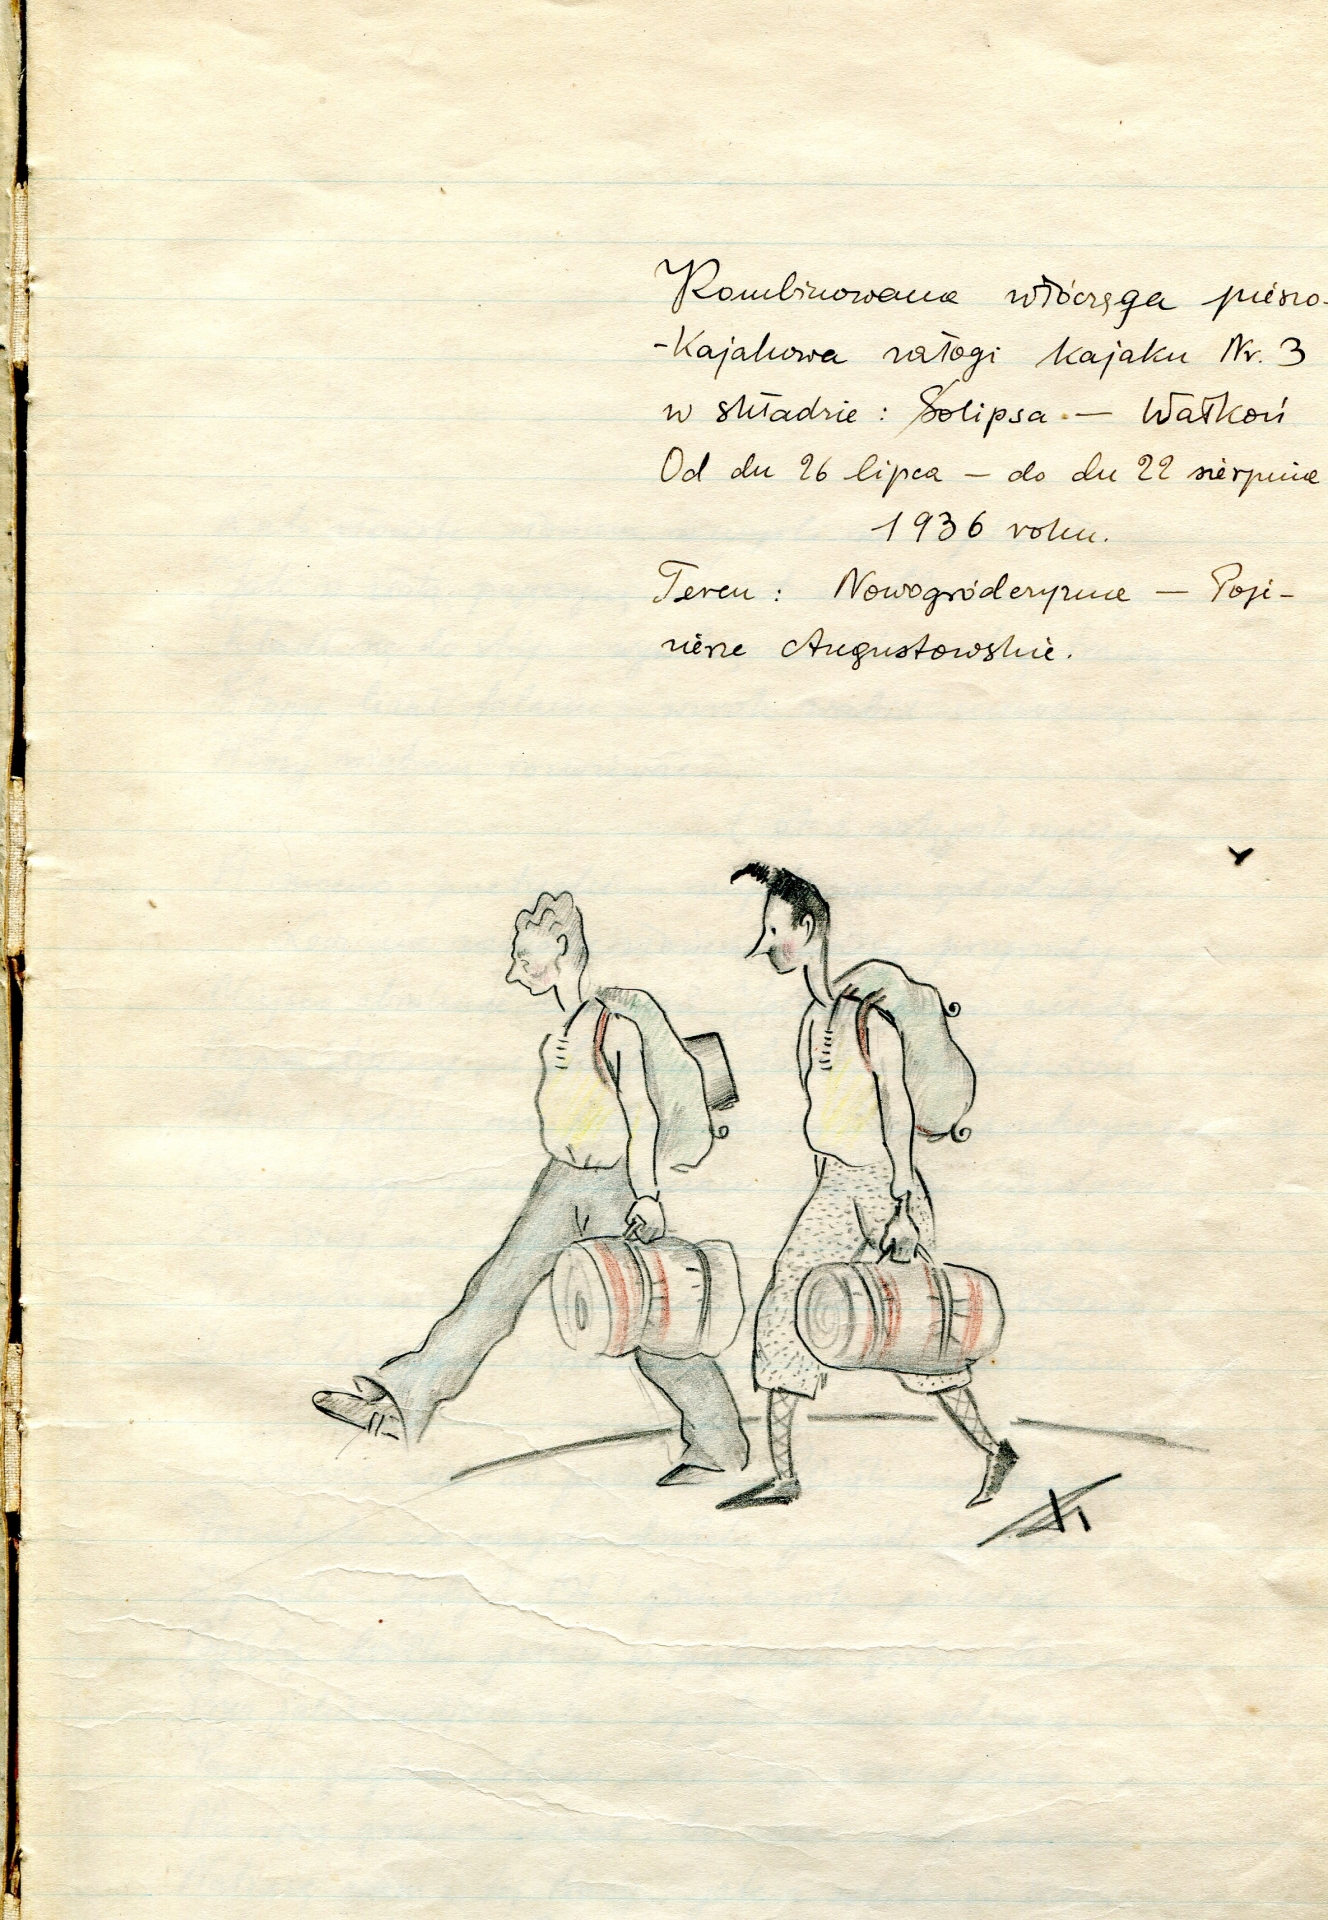 Kombinowana włóczęga pieszo-
-Kajakowa załogi kajaku Nr. 3
w składzie : Solipsa — Wałkoń
Od dn 26 lipca — do dn 22 sierpnia
1936 roku.
Teren : Nowogródczyzna — Poje-
zierze Augustowskie.